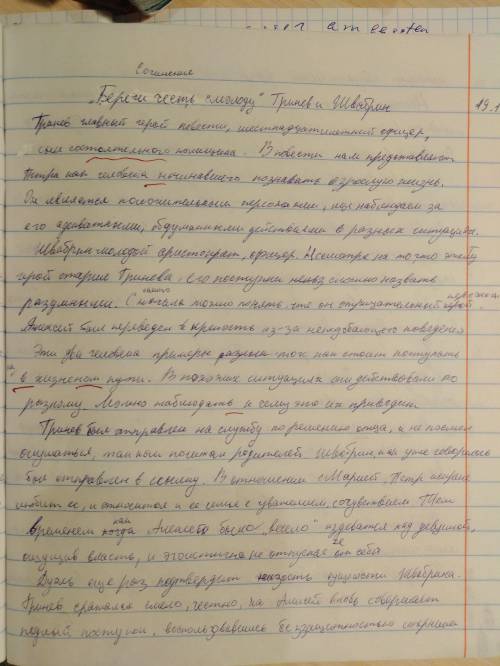 Сочинение
„Береги честь смолоду" Гринев и Швабрин 19.1
Гринев главный герой повести, шестнадцатилетний офицер,
сын состоятельного помещика. В повести нам представляют
Петра как человека начинавшего познавать взрослую жизнь.
Он является положительным персонажем, мы наблюдаем за
его адекватными, обдуманными действиями в разных ситуациях.
Швабрин молодой аристократ, офицер. Несмотря на то что этому
герой старше Гринева, его поступки невозможно назвать
разумными. С самого начала можно понять что он отрицательный персонаж
Алексей был переведен в крепость из-за неподобающего поведения
Эти два человека примеры разных того как стоит поступать
в жизненом пути. В похожих ситуациях они действовали по
разному. Можно наблюдать к чему это их приводит.
Гринев был отправлен на службу по решению отца, и не посмел
ослушаться, так как почитал родителей Швабрин, как уже говорилось
был отправлен в ссылку. В отношении с Марией, Петр искренне
любит ее, и относится к ее семье с уважением, сочувствием Тем
временем как Алексею было „весело" издеваться над девушкой,
ощущив власть, и эгоистично не отпускает ее от себя
Дуэль еще раз подтвердит низость сущности Швабрина.
Гринев сражался смело, честно, но Алексей вновь совершает
подлый поступок, воспользовавшись беззащитностью соперника